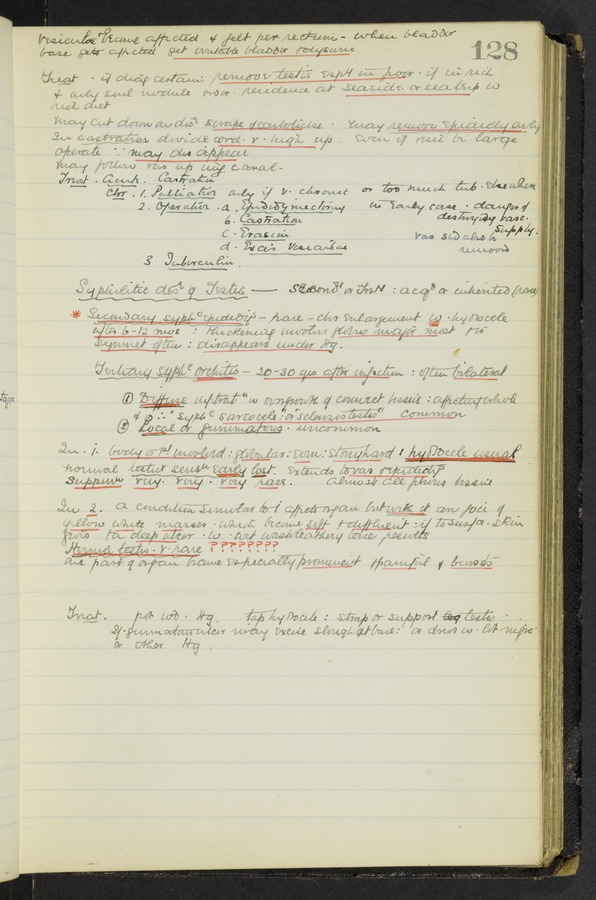 Vesiculae become affected & felt per rectum - when bladder
base gets affected get irritable bladder polyuria
128
Treat - if diag certain remove testis esp if in poor . if in rich
& only seml nodule order . residence at seaside or sea trip
rich diet
may cut down on do scrape & carbolicise . may remove epididy only
In castration divide cord . v . high up . Even if vesic be large
operate ∵ may disappear
may follow vas up ing canal .
Treat . Acute . Castration
Chr . 1. Palliation only if v. chronic or too much tub. elsewhere
2. Operation . a. Epididymectomy in early case . danger of
destroying vasc.
supply.
b. Castration
c. Erasion
vas shd also be
removed
d. Excis vesiculae
3 Tuberculin .
Syphilitic dis of Testis — : acqd or inherited (rare)
* Secondary syphc epididys - rare - chr enlargement w . hydrocele
after 6-12 mos : thickening involves globus major most
Symmet often : disappears under Hg .
Tertiary Syphc orchitis - 20-30 yrs after infection : often bilateral
tajor
① Diffuse w overgrowth of connect tissue : affecting whole
& o ∴ "syphc sarcocele" or "sclerosis testis" common
② Local or gummatous . uncommon
In . 1. body involved : globular : even : stony hard : hydrocele usual
normal testic sensn early lost . Extends to vas
suppurn very . very . very rare . almost all fibrous tissue
In 2. a condition similar to 1 affects organ but with it are foci of
yellow white masses . which become soft & diffluent . if to surfa . skin
gives for deep ulcer . w . wet washleathery base results
Hernia testis . v . rare ????????
one part of organ become especially prominent & painful & bursts
Treat . pot iod . Hg . tap hydrocele : strap or support testis .
If . gummatous ulcer may excise slough at base : or dress w . lot nigra
or other Hg .